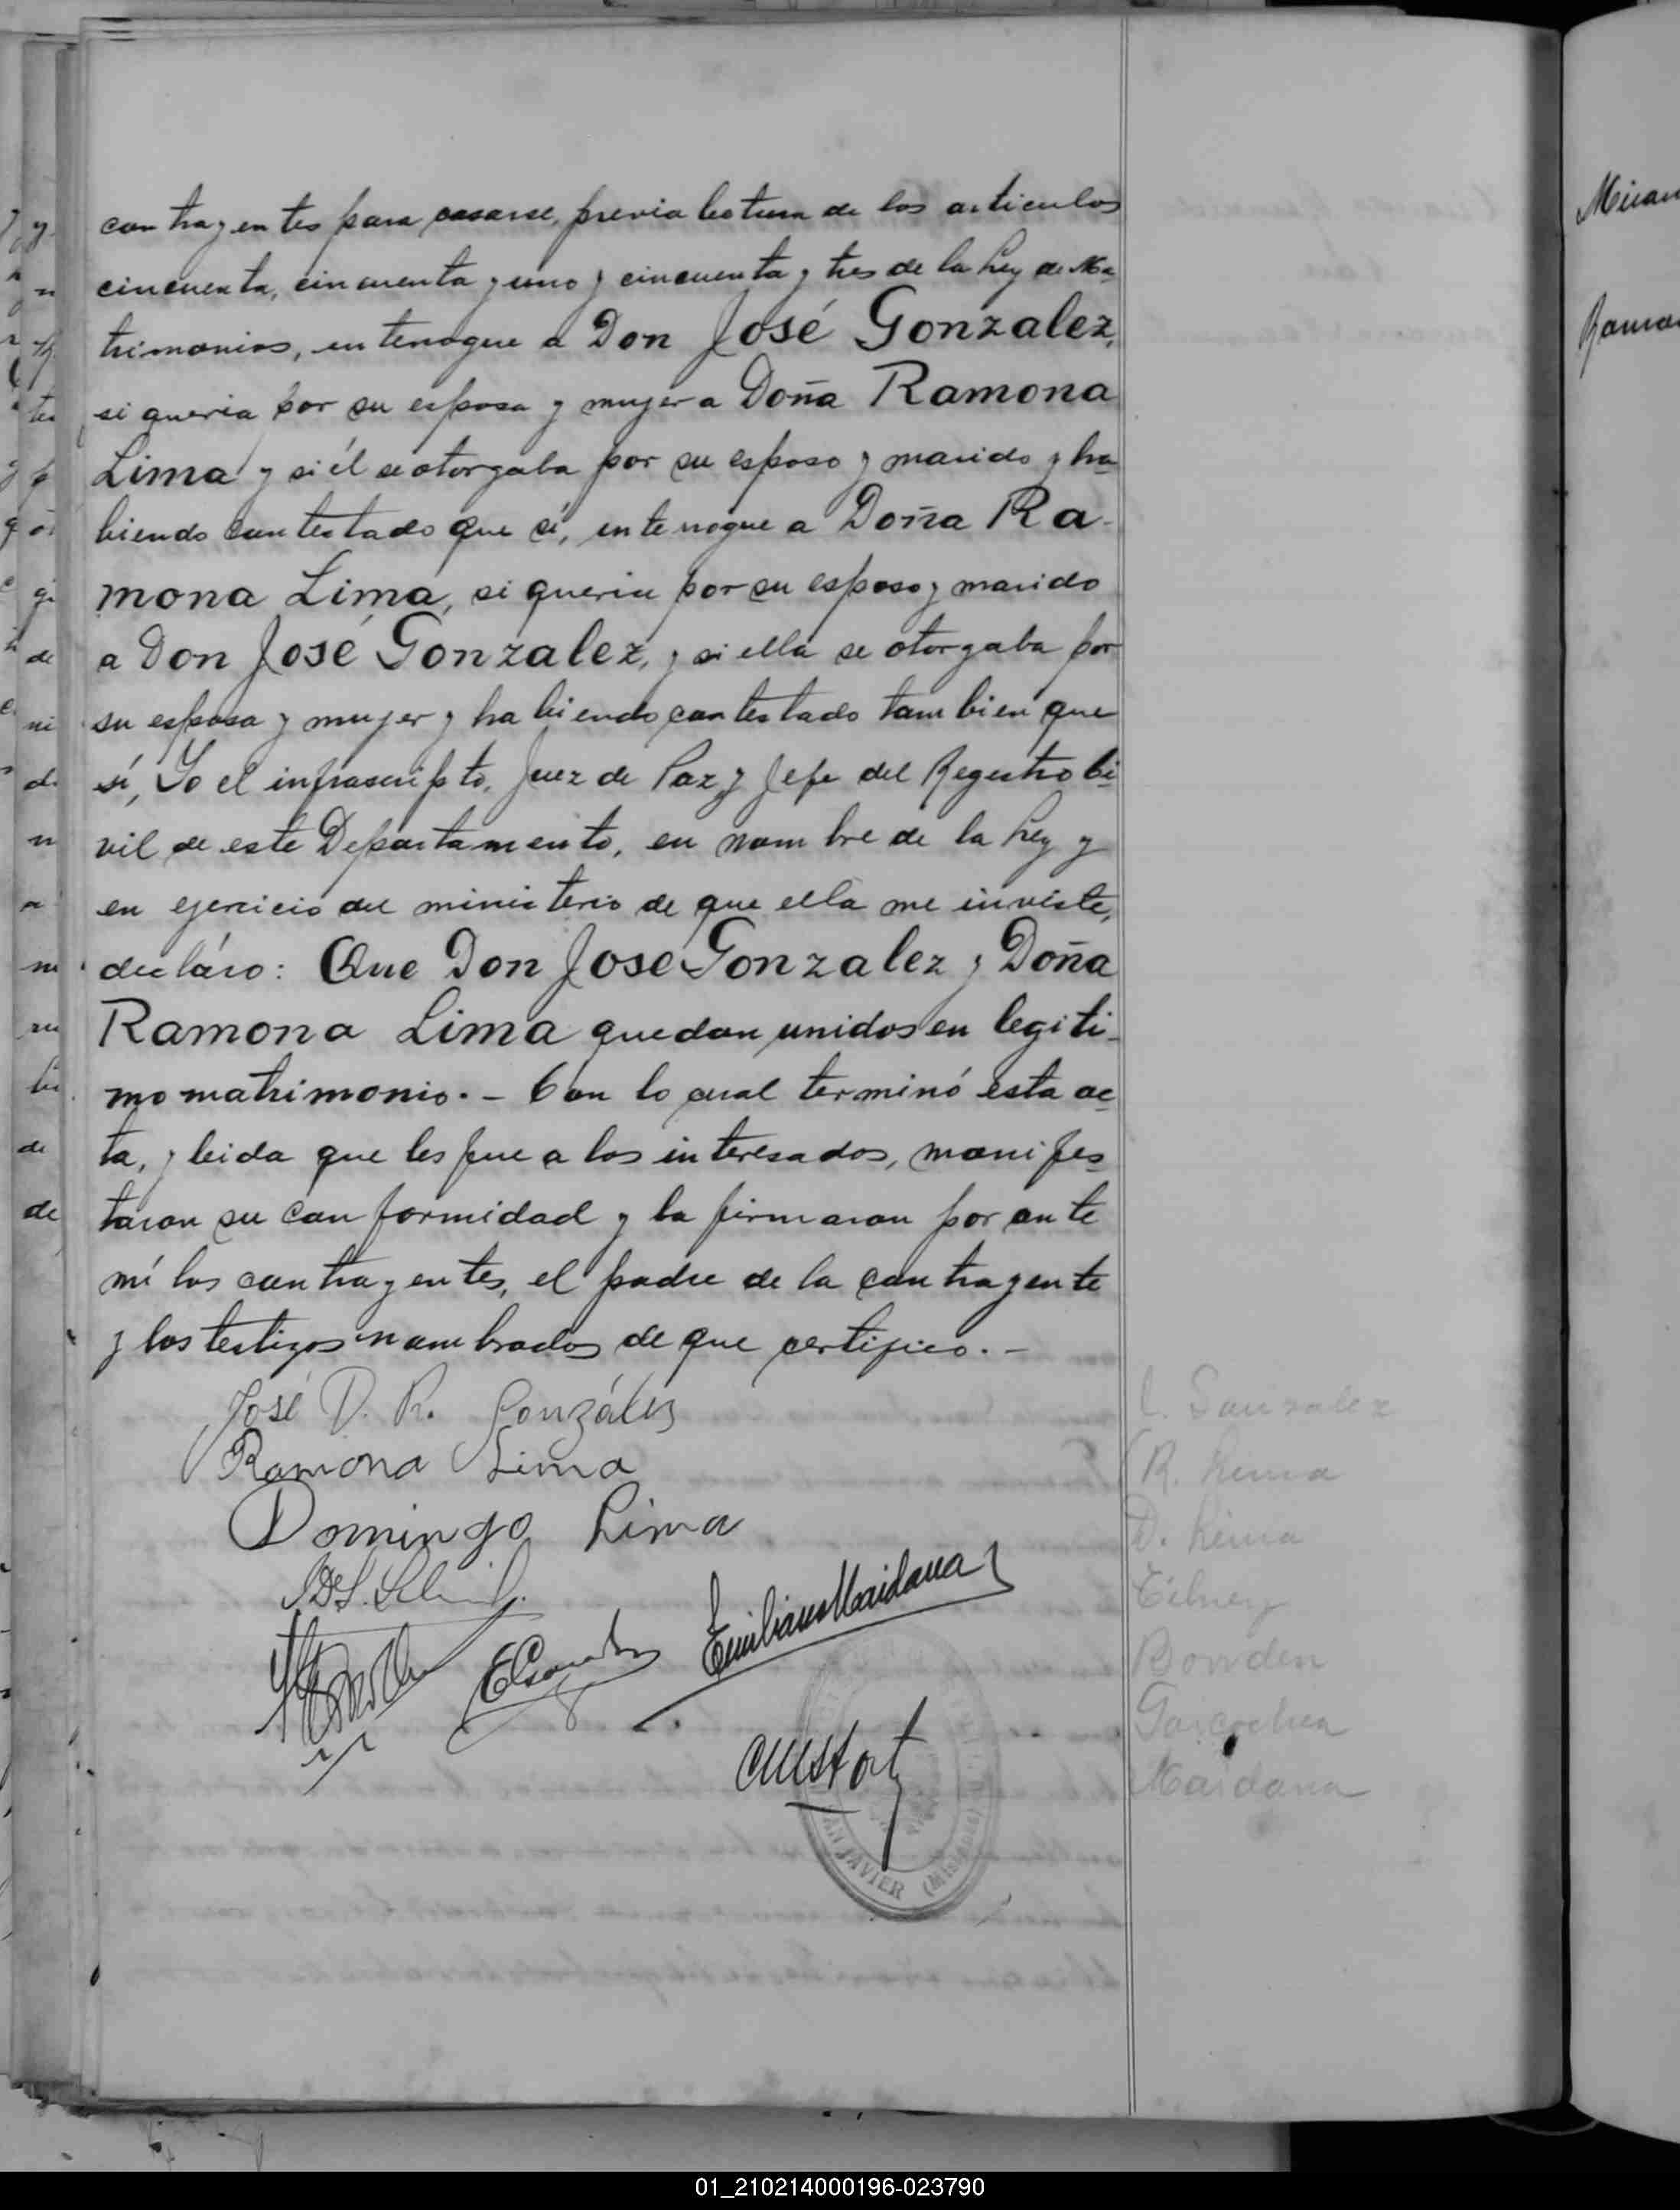 contrayentes para casarse, previa lectura de los articulos
cincuenta, cincuenta y uno y cincuenta y tres de la Ley de Ma-
trimonios, interrogue a Don José Gonzalez,
si queria por su esposa y mujer a Doña Ramona
Lima y si él se otorgaba por su esposo y marido y ha-
biendo contestado que sí, interrogue a Doña Ra-
mona Lima, si queria por su esposo y marido
a Don José Gonzalez, y si ella se otorgaba por
su esposa y mujer y habiendo contestado tambien que
sí, Yo el infrascripto, Juez de Paz y Jefe del Registro Ci-
vil de este Departamento, en nombre de la Ley y
en ejercicio del ministerio de que ella me inviste,
decláro: Que Don José Gonzalez y Doña
Ramona Lima quedan unidos en legiti-
mo matrimonio. - Con lo cual terminó esta ac-
ta, y leida que les fue a los interesados, manifes-
taron su conformidad y la firmaron por ante
mí los contrayentes, el padre de la contrayente
y los testigos nombrados de que certifico. -
José D. R. Gonzáles
Ramona Lima
Domingo Lima
Emiliano Maidana
SAN JAVIER (Misiones)
J. Gonzalez
R. Lima
D. Lima
Tilney
Bowden
Goicochea
Maidana
Ramo
01_210214000196-023790